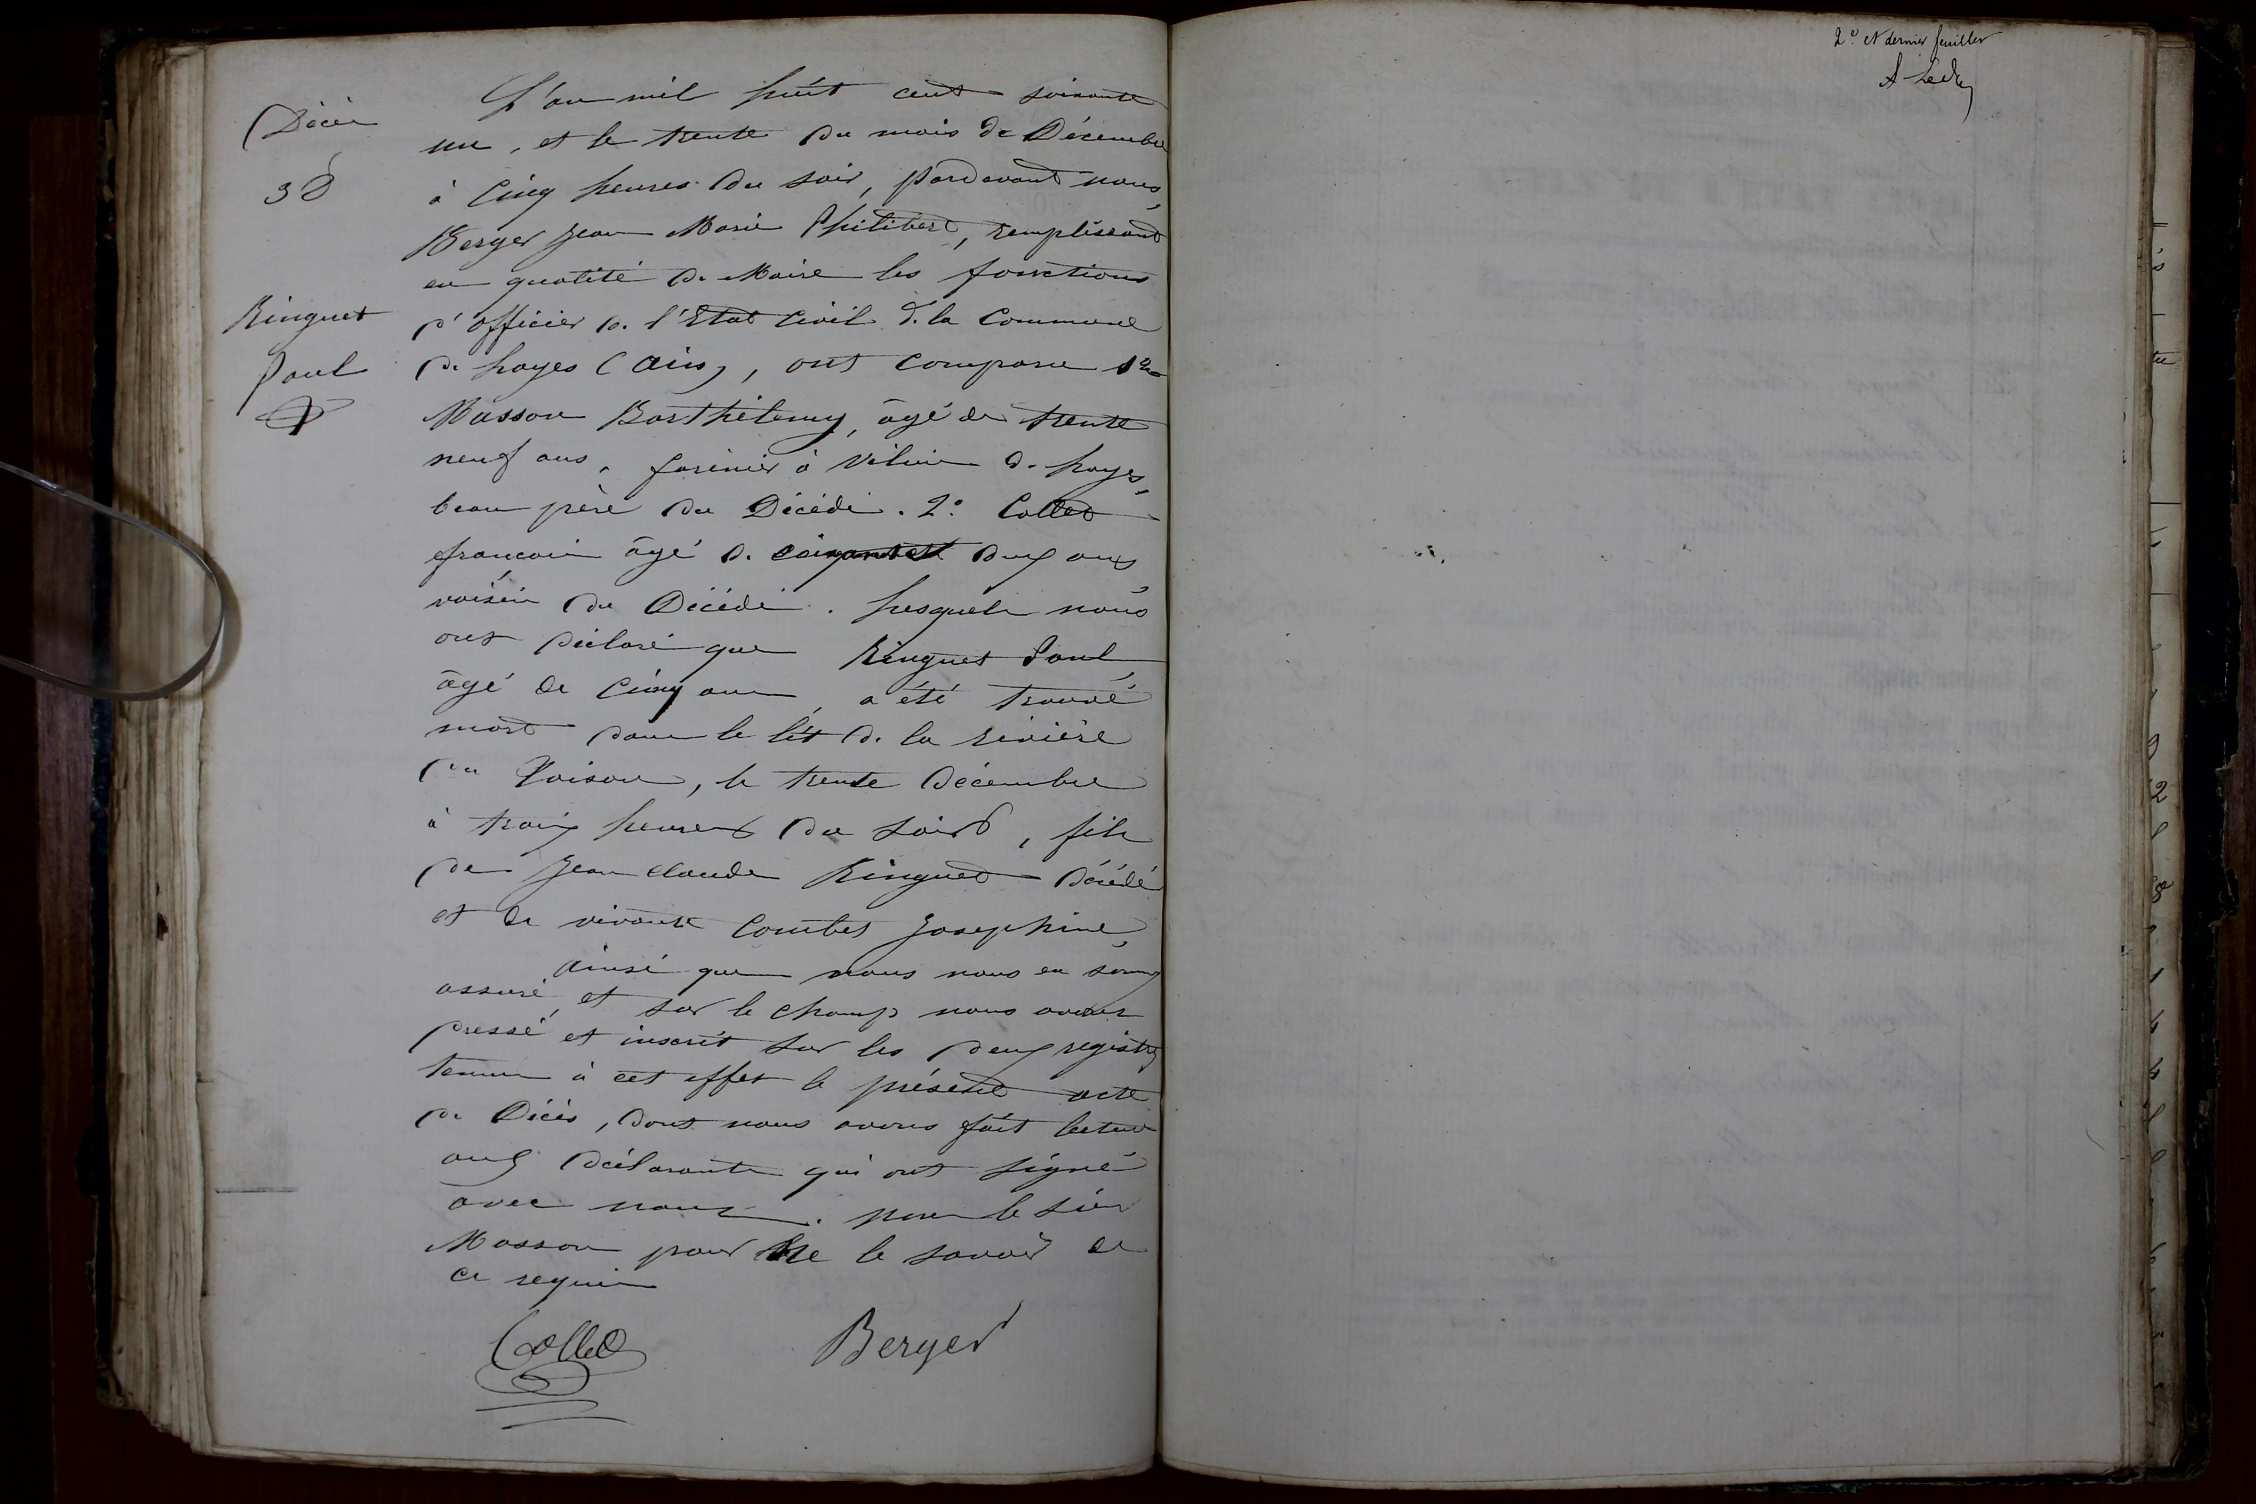 Décès
38
Ringuet
Paul
L'an mil huit cent soixante
un, et le trente du mois de Décembre
à cinq heures du soir, pardevant nous,
Berger Jean Marie Philibert, remplissant
en qualité de Maire les fonctions
d'officier de l'Etat civil de la Commune
de hayes (Ain), ont comparu 1°
Masson Barthélemy, âgé de trente
neuf ans, fermier à de hayes,
beau père du Décédé. 2° Collet
françois âgé de deux ans
voisin du Décédé. Lesquels nous
ont déclaré que Ringuet Paul,
âgé de cinq ans, a été trouvé
mort dans le lit de la rivière
du Toison, le trente Décembre
à trois heures du soir, fils
de Jean Claude Ringuet Décédé
et de vivante Combet Josephine,
ainsi que nous nous en somes
assuré, et sur le champ nous avons
dressé et inscrit sur les deux registres
tenus à cet effet le présent acte
de Décès, dont nous avons fait lecture
aux Déclarants qui ont signé
avec nous. non le sieur
Masson pour ne le savoir de
ce requis
Collet
Berger
2e et dernier feuillet